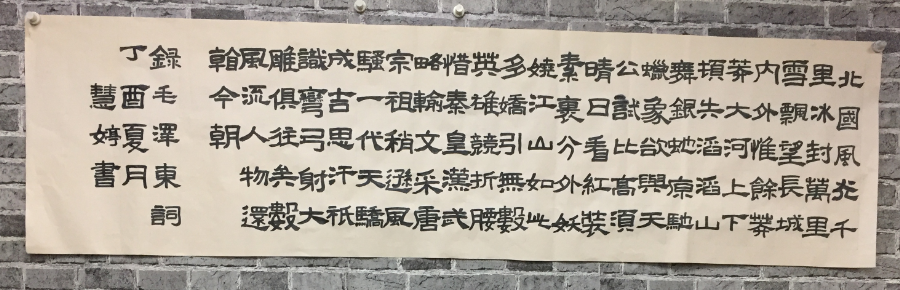 北國風光千
里冰封萬里
雪飄望長城
内外惟餘莽
莽大河上下
頓失滔滔山
舞銀蛇原馳
蠟象欲與天
公試比高須
晴日看紅裝
素裹分外妖
嬈江山如此
多嬌引無數
英雄競折腰
惜秦皇漢武
略輸文采唐
宗祖稍遜風
騷一代天驕
成古思汗祇
識彎弓射大
雕俱往矣數
風流人物還
看今朝
録毛澤東詞
丁酉夏月
慧婷書